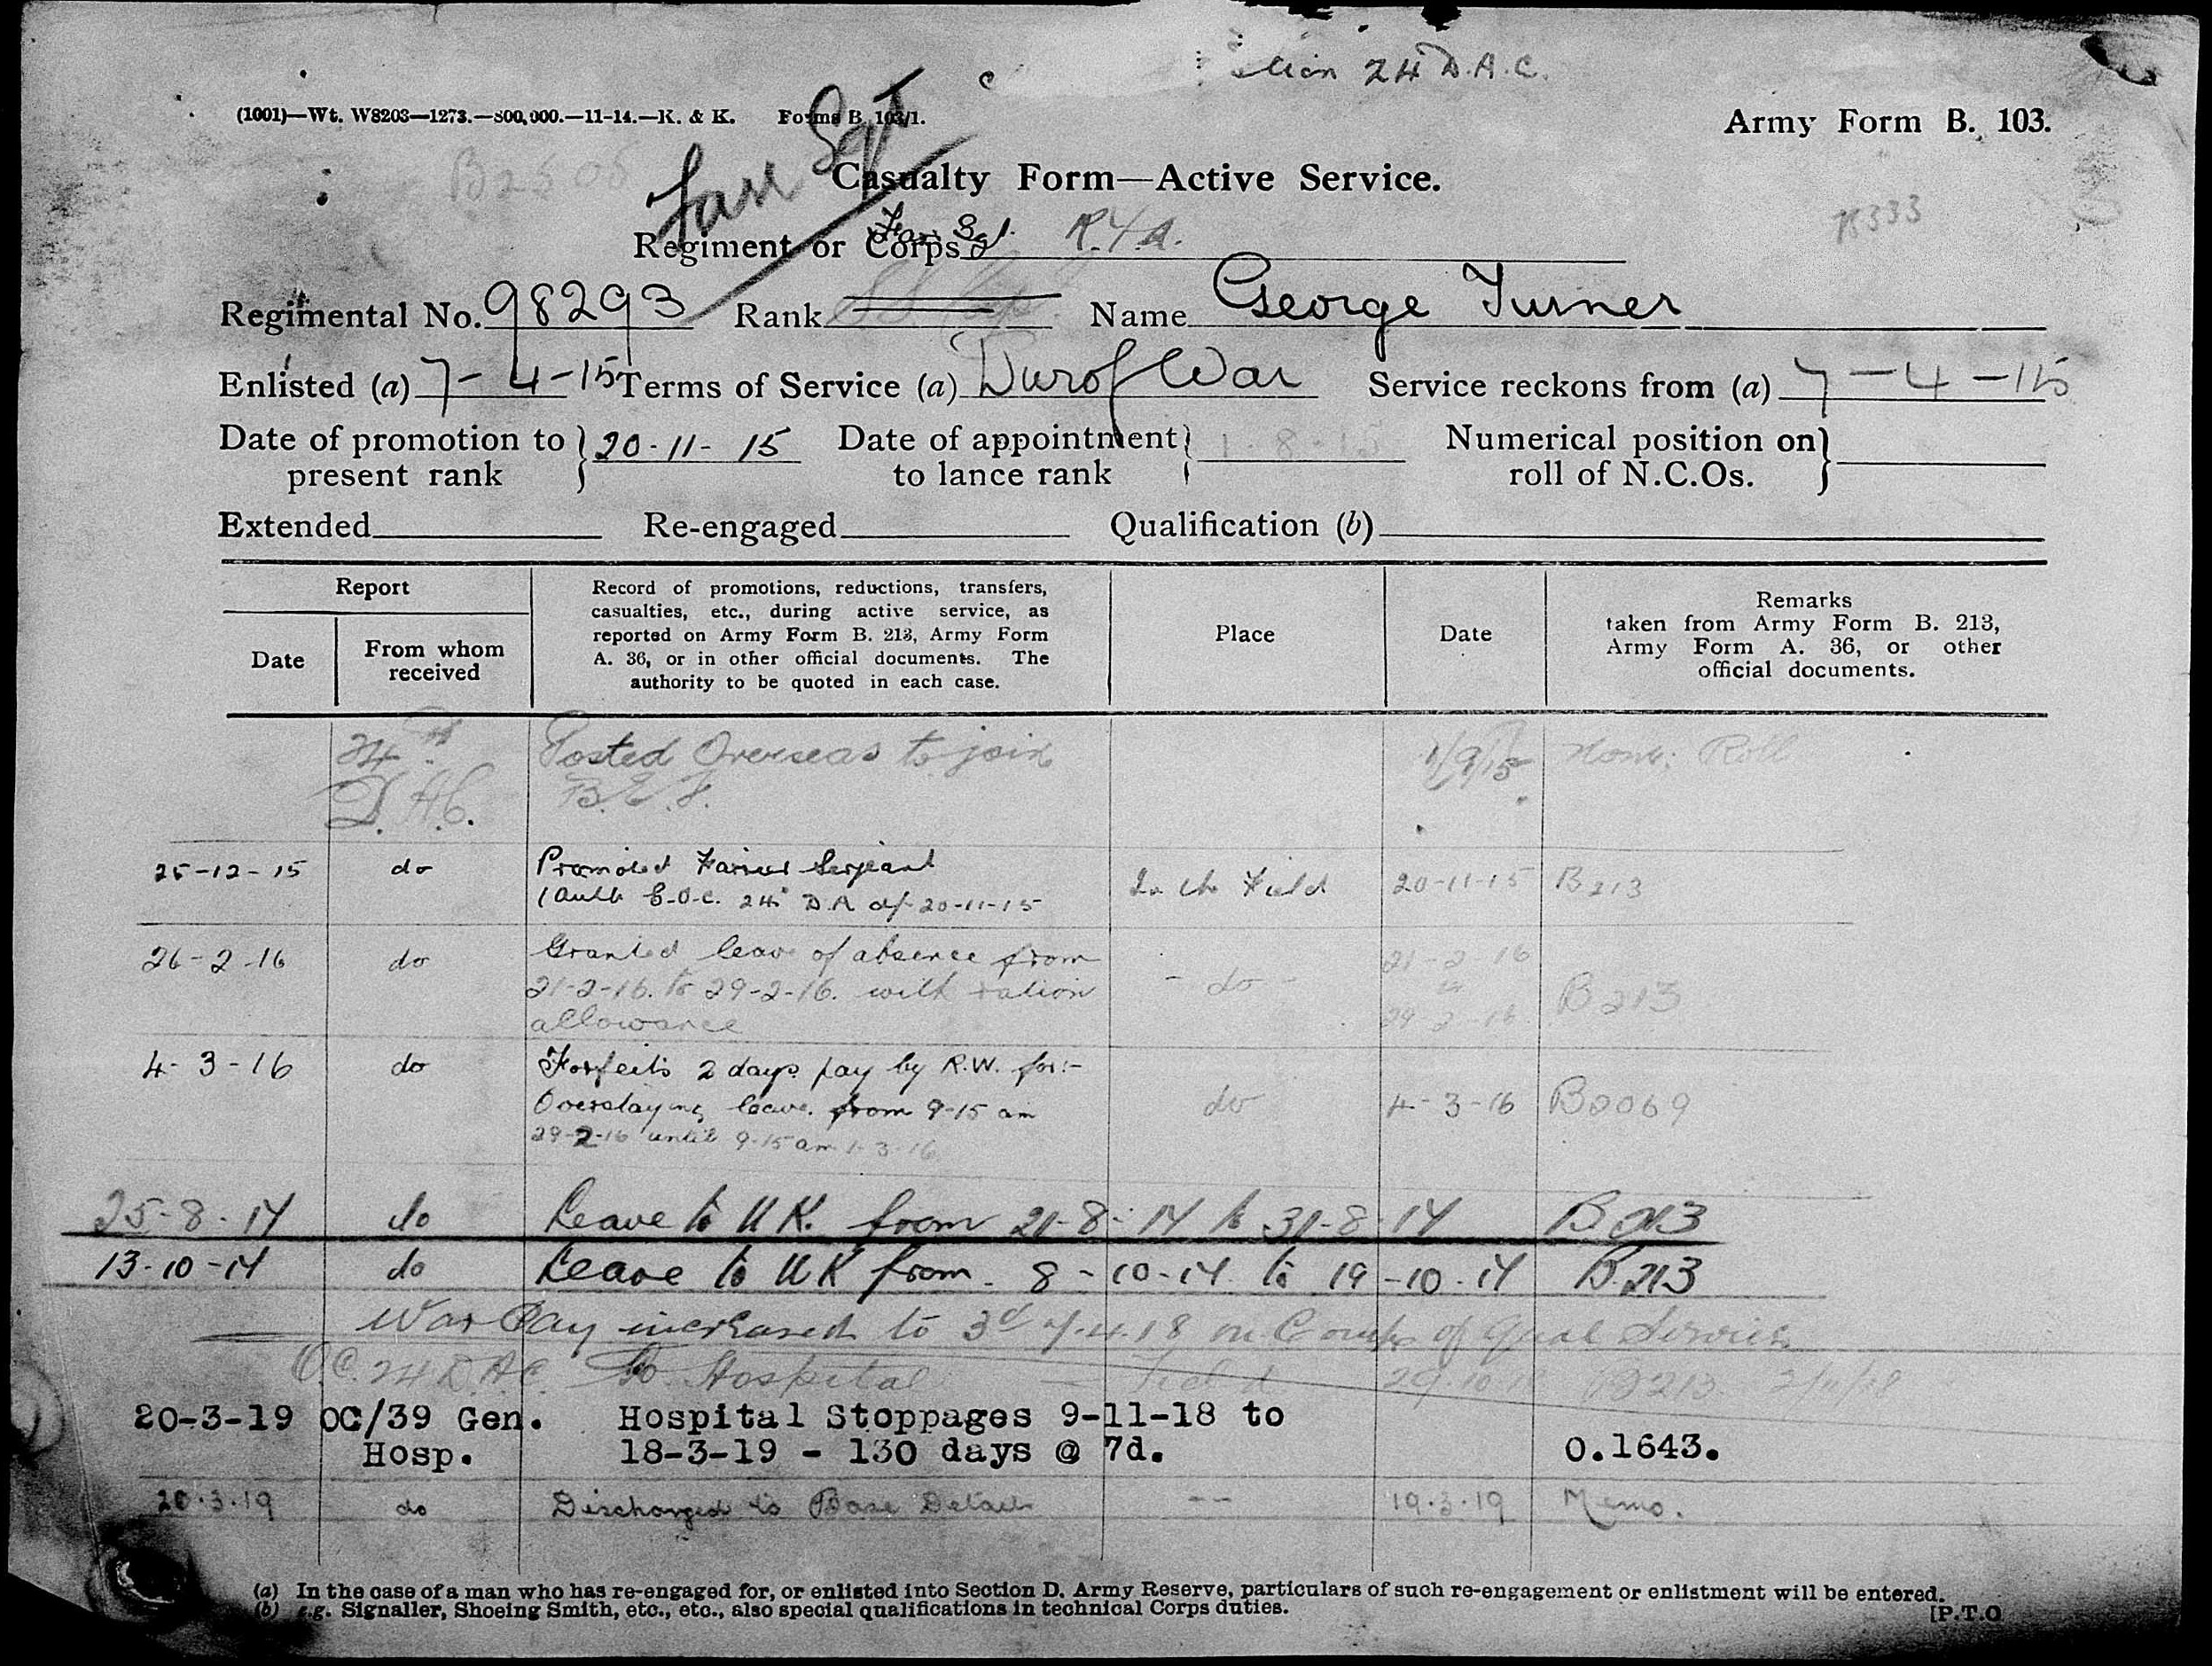 24 D.A.C.
(1001)—Wt. W8203—1273.—800,000.—11-14.—K. & K. Forms B. 103/1.
Army Form B. 103.
Farr Sgt
Casualty Form—Active Service.
B333
Regiment or Corps Farr Sgt. R.F.A.
Regimental No. 98293 Rank Name George Turner
Enlisted (a) 7-4-15 Terms of Service (a) Dur of War Service reckons from (a) 7-4-15
Date of promotion to present rank } 20-11-15 Date of appointment to lance rank } 1-8-15 Numerical position on roll of N.C.Os. }
Extended Re-engaged Qualification (b)
Report
Date
From whom received
Record of promotions, reductions, transfers,
casualties, etc., during active service, as
reported on Army Form B. 213, Army Form
A. 36, or in other official documents. The
authority to be quoted in each case.
Place
Date
Remarks
taken from Army Form B. 213,
Army Form A. 36, or other
official documents.
24th Posted Overseas to join 1/9/15 Roll
D.A.C. B.E.F.
25-12-15 do Promoted Farrier Serjeant
(Auth G.O.C. 24th D.A. d/- 20-11-15 In the Field 20-11-15 B213
26-2-16 do Granted leave of absence from 21-2-16
21-2-16. to 29-2-16. with ration - do - to B213
allowance 29-2-16
4-3-16 do Forfeits 2 days pay by R.W. for:-
Overstaying leave. from 9-15 am do 4-3-16 B2069
29-2-16 until 9-15 am 1-3-16
25-8-17 do Leave to U.K. from 21-8-17 to 31-8-17 B213
13-10-17 do Leave to UK from 8-10-17 to 19-10-17 B.213
War Pay increased to 3d 7.4.18 on Compn of Qual Service
O.C. 24 D.A.C. To Hospital Field 29.10.18 B213 2/11/18
20-3-19 OC/39 Gen. Hospital Stoppages 9-11-18 to
Hosp. 18-3-19 - 130 days @ 7d. O.1643.
20.3.19 do Discharged to Base Details -- 19.3.19 Memo.
(a) In the case of a man who has re-engaged for, or enlisted into Section D. Army Reserve, particulars of such re-engagement or enlistment will be entered.
(b) e.g. Signaller, Shoeing Smith, etc., etc., also special qualifications in technical Corps duties.
[P.T.O